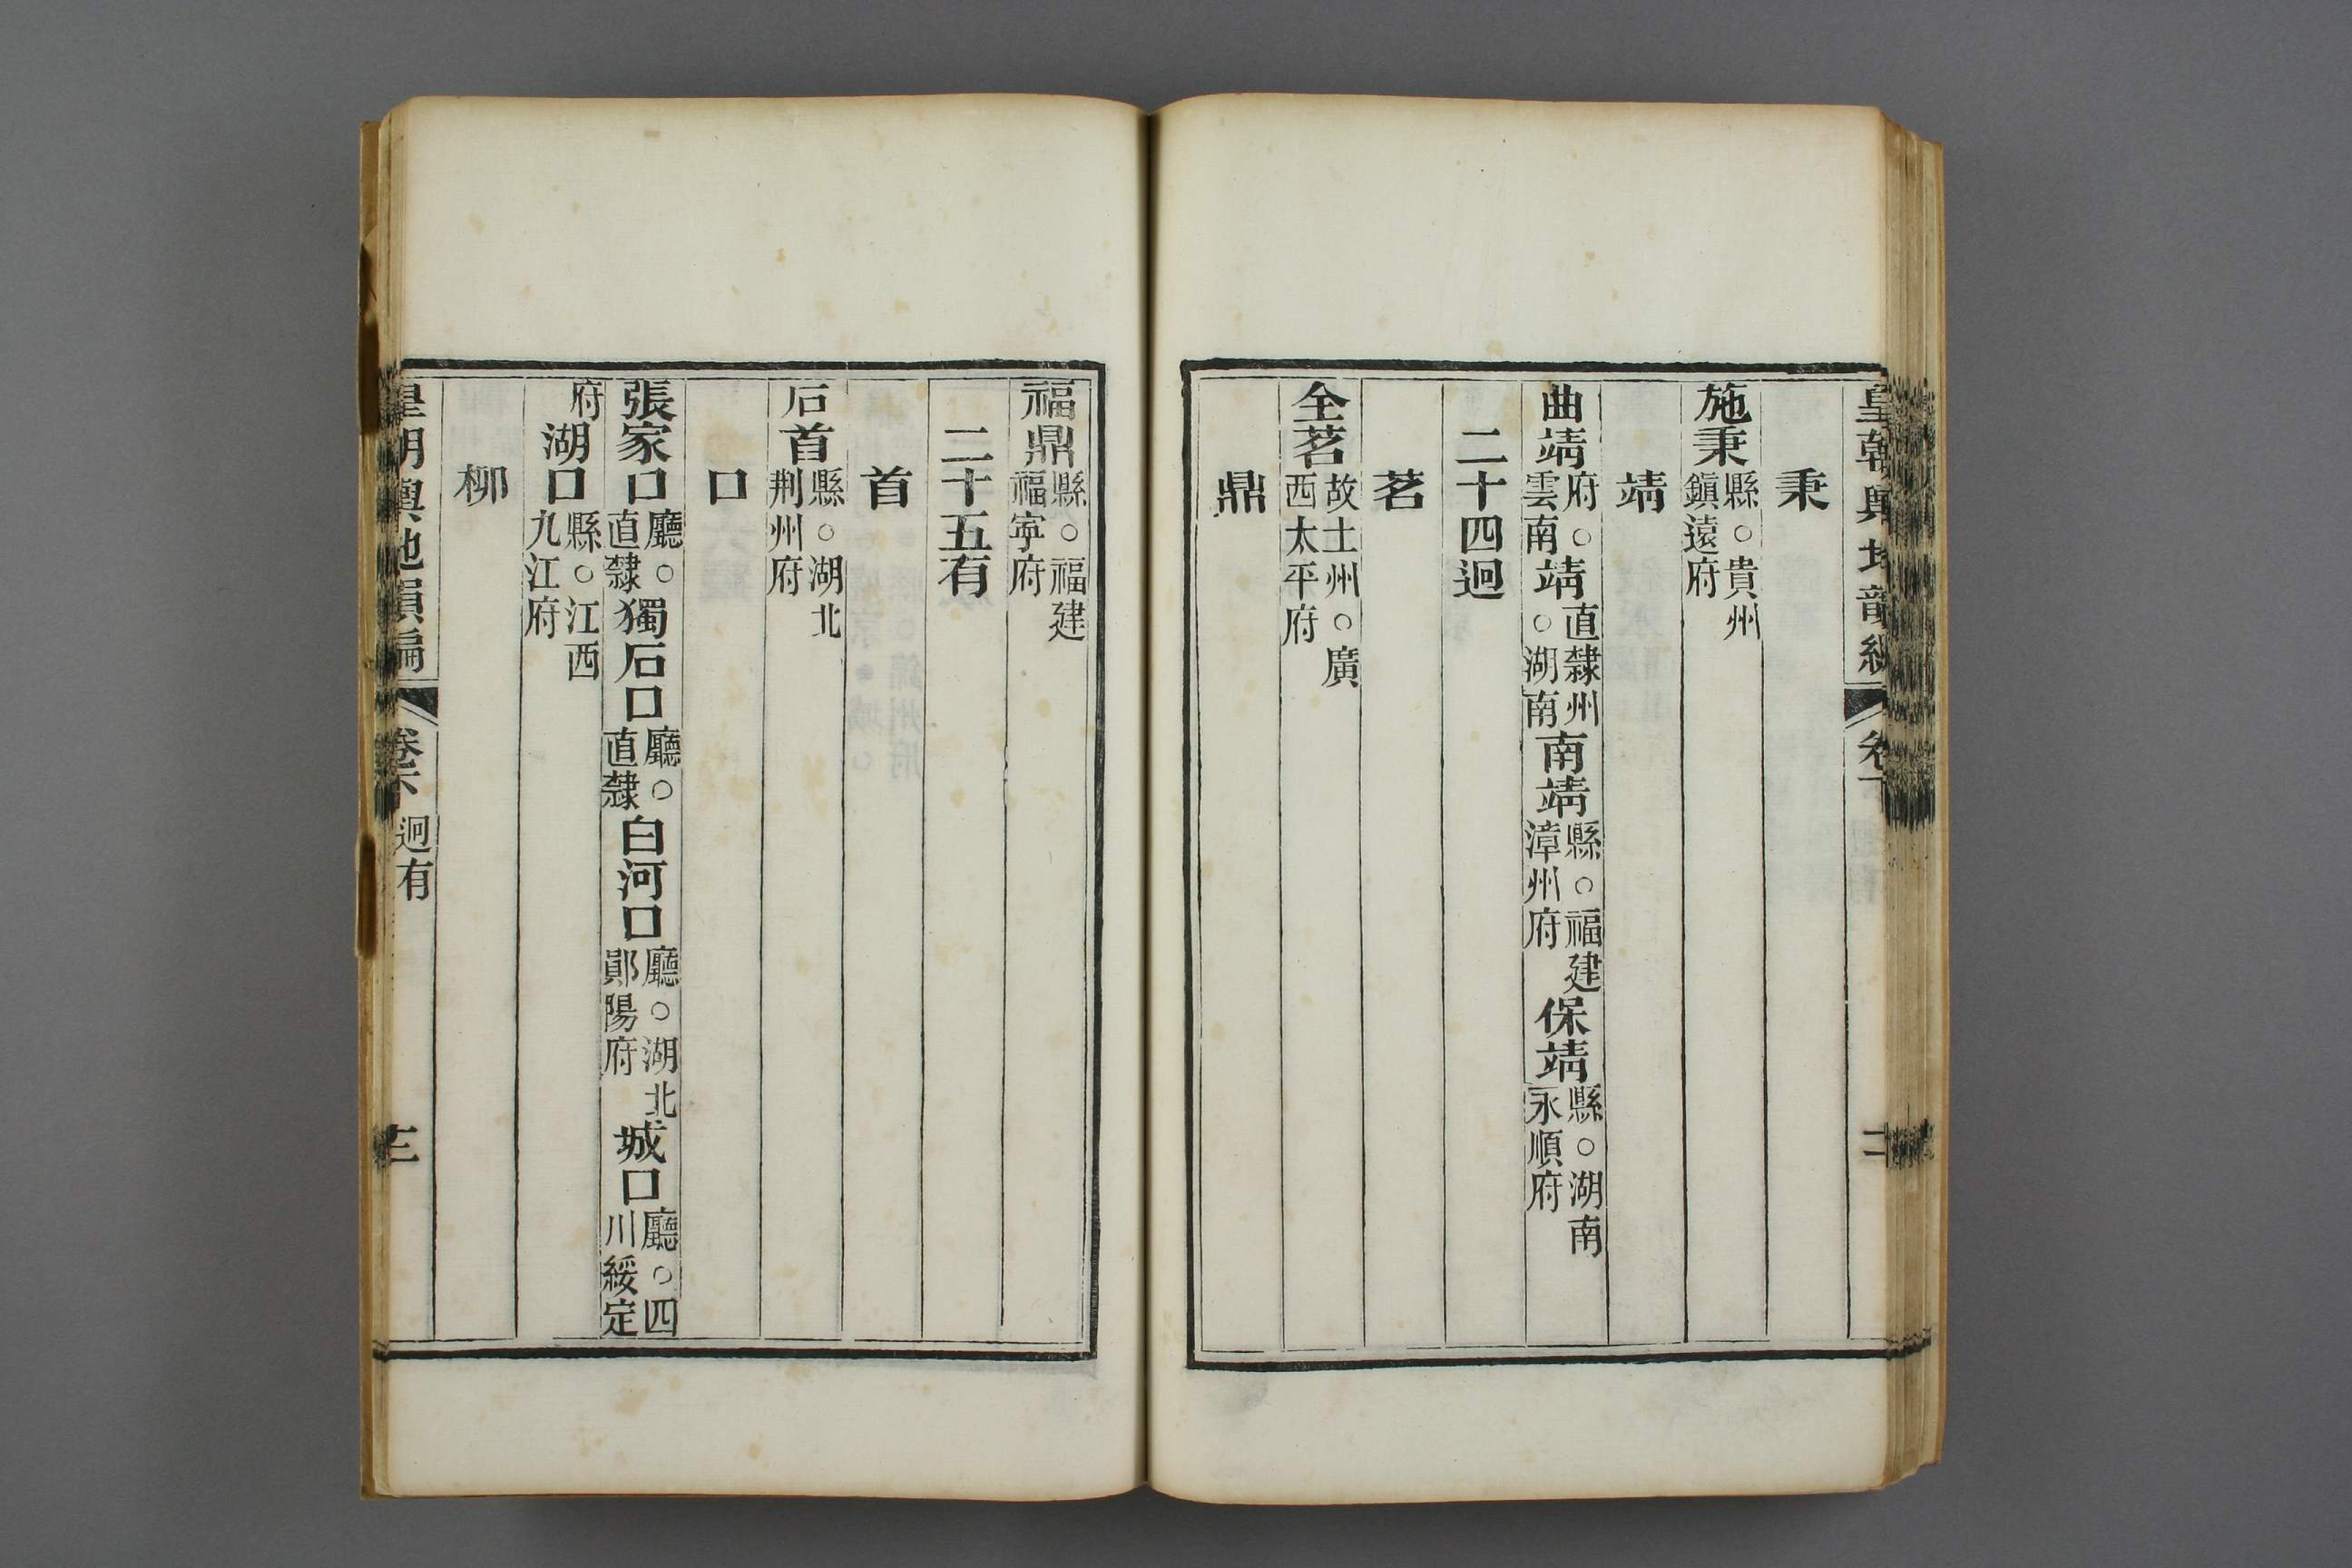 秉
施秉縣○貴州鎮遠府
靖
曲靖府○雲南靖直隸州○湖南南靖縣○福建漳州府保靖縣○湖南永順府
二十四迥
茗
全茗故土州○廣西太平府
鼎
福鼎縣○福建福寧府
二十五有
首
石首縣○湖北荆州府
口
張家口廳○直隸獨石口廳○直隸白河口廳○湖北鄖陽府城口廳○四川綏定
府湖口縣○江西九江府
柳
皇朝輿地韻編 卷下 迥有